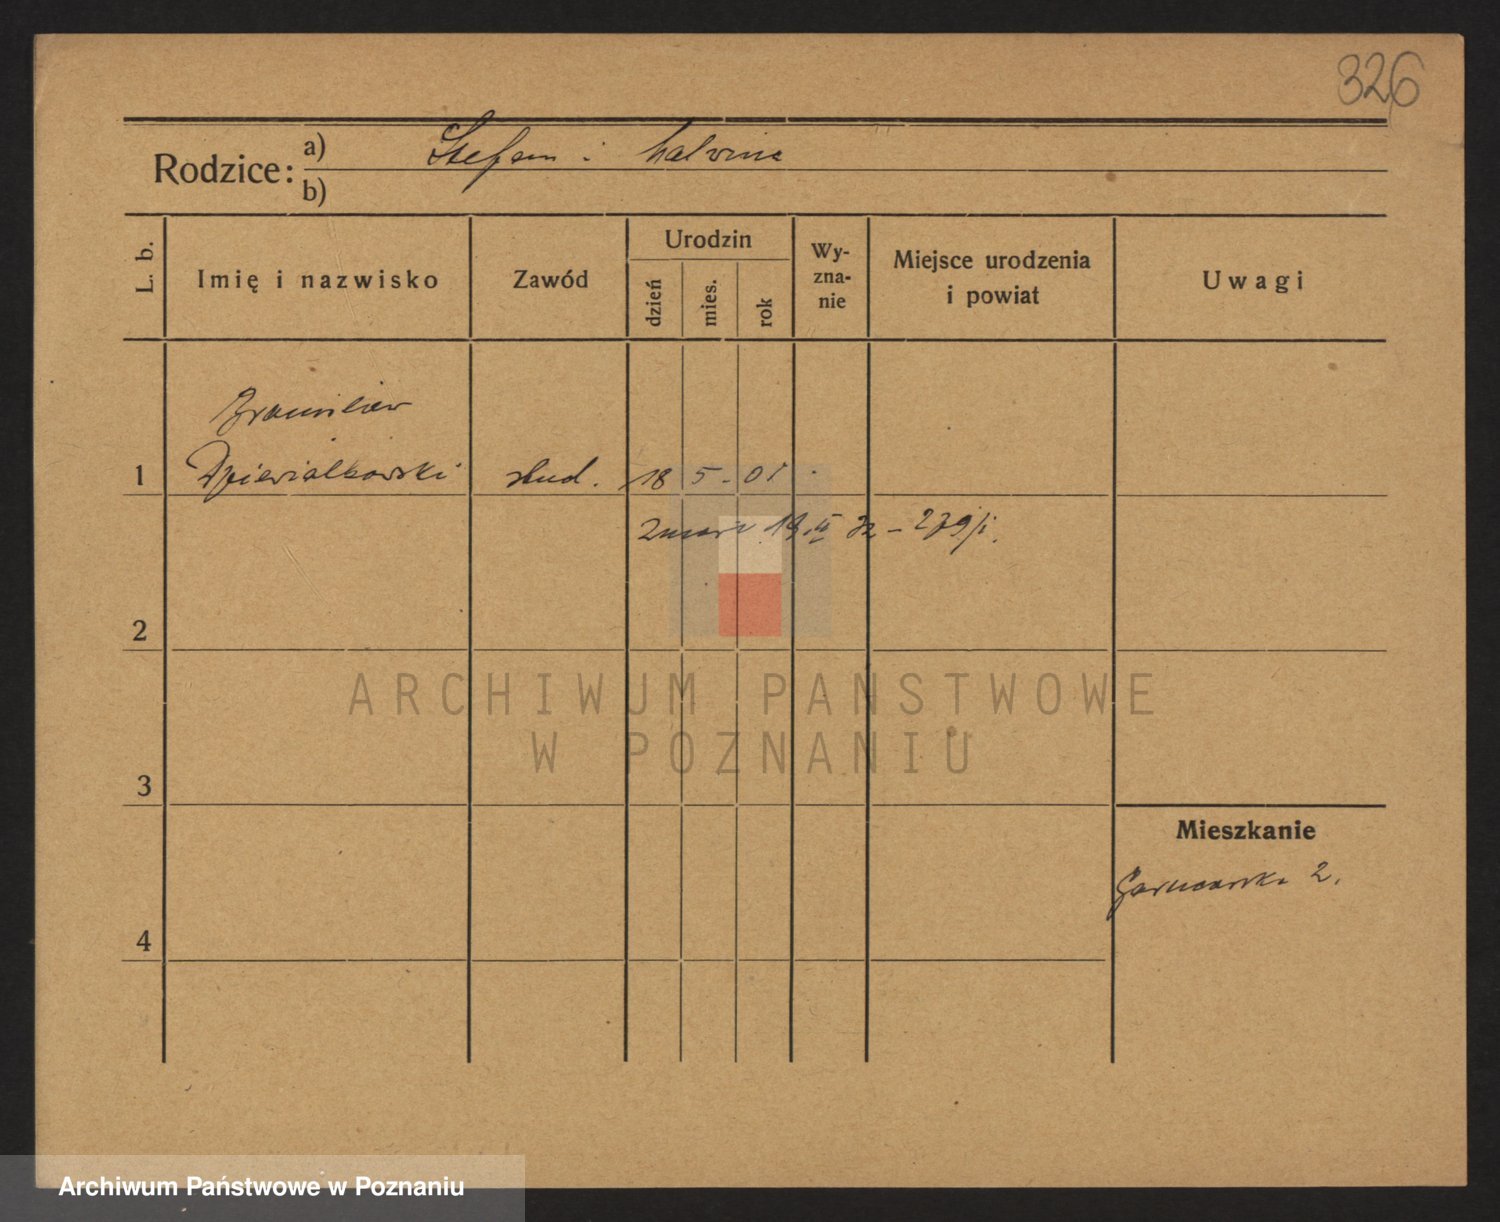 326
Rodzice: a) Stefan i Malvine
b)
L. b.
Imię i nazwisko
Zawód
Urodzin
dzień
mies.
rok
Wy-
zna-
nie
Miejsce urodzenia
i powiat
Uwagi
Bronisław
1 Dziewialkowski stud. 18 5 - 01
zmarł 19. 32 -
2
ARCHIWUM PAŃSTWOWE
W POZNANIU
3
Mieszkanie
2.
4
Archiwum Państwowe w Poznaniu